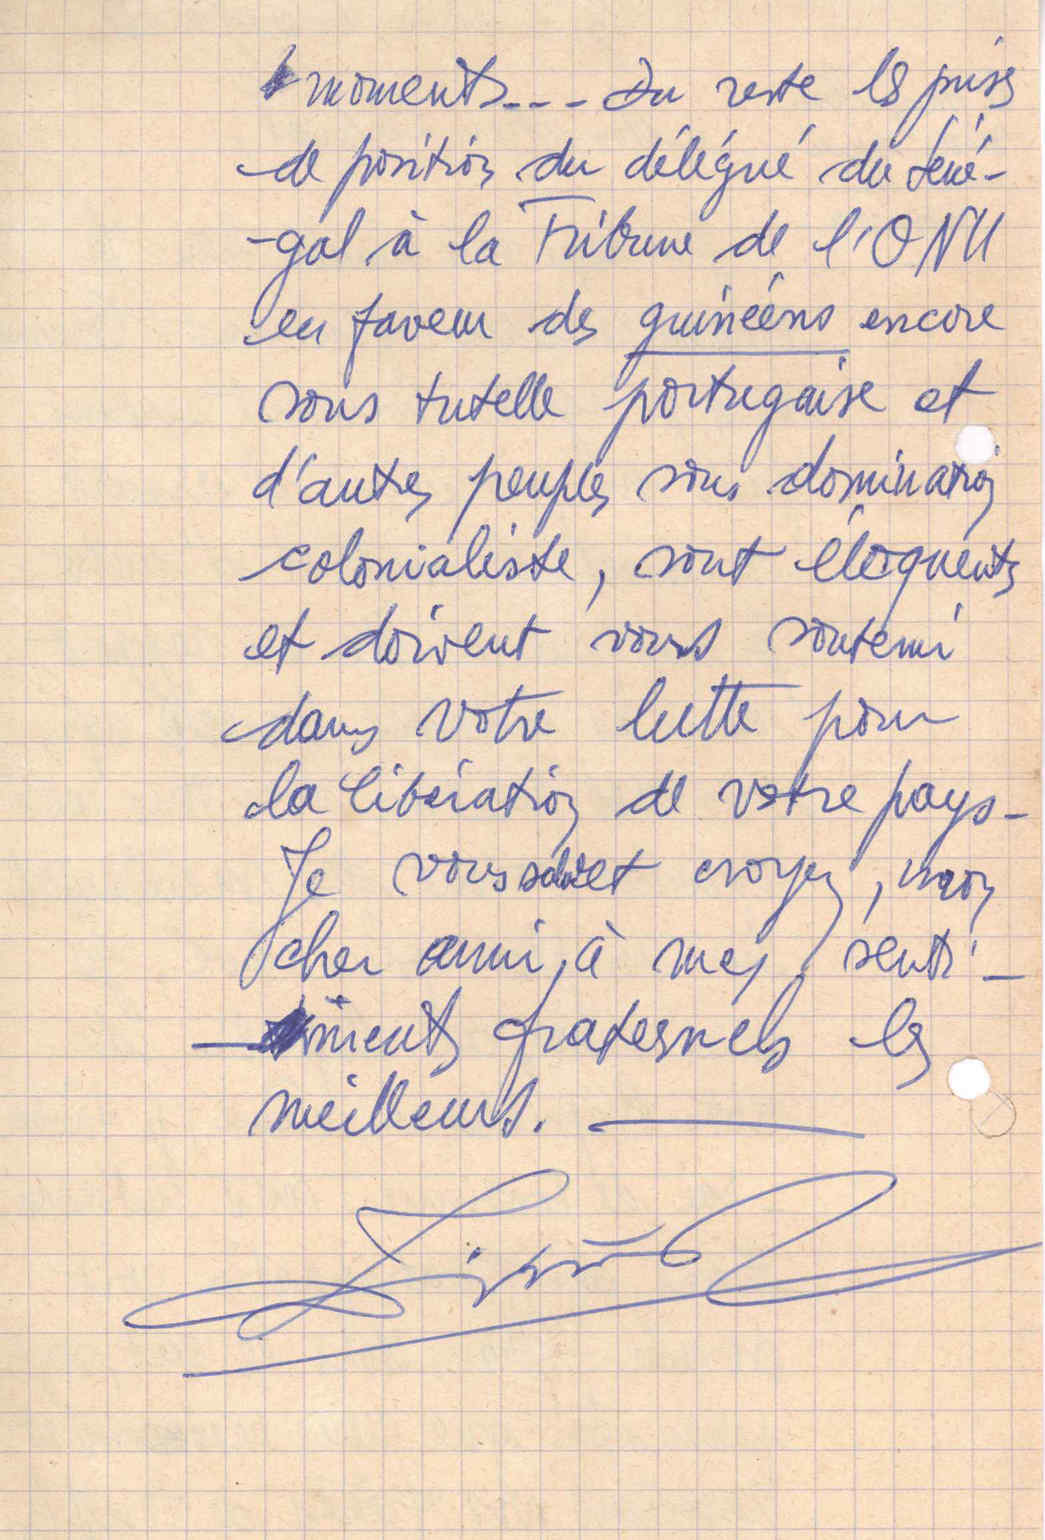 moments... Du reste les prises
de position du délégué du Séné-
-gal à la Tribune de l'ONU
en faveur des guinéens encore
sous tutelle portugaise et
d'autres peuples sous domination
colonialiste, sont éloquents
et doivent vous soutenir
dans votre lutte pour
la libération de votre pays.
Je vous et croyez, mon
cher ami, à mes senti-
-ments fraternels les
meilleurs.